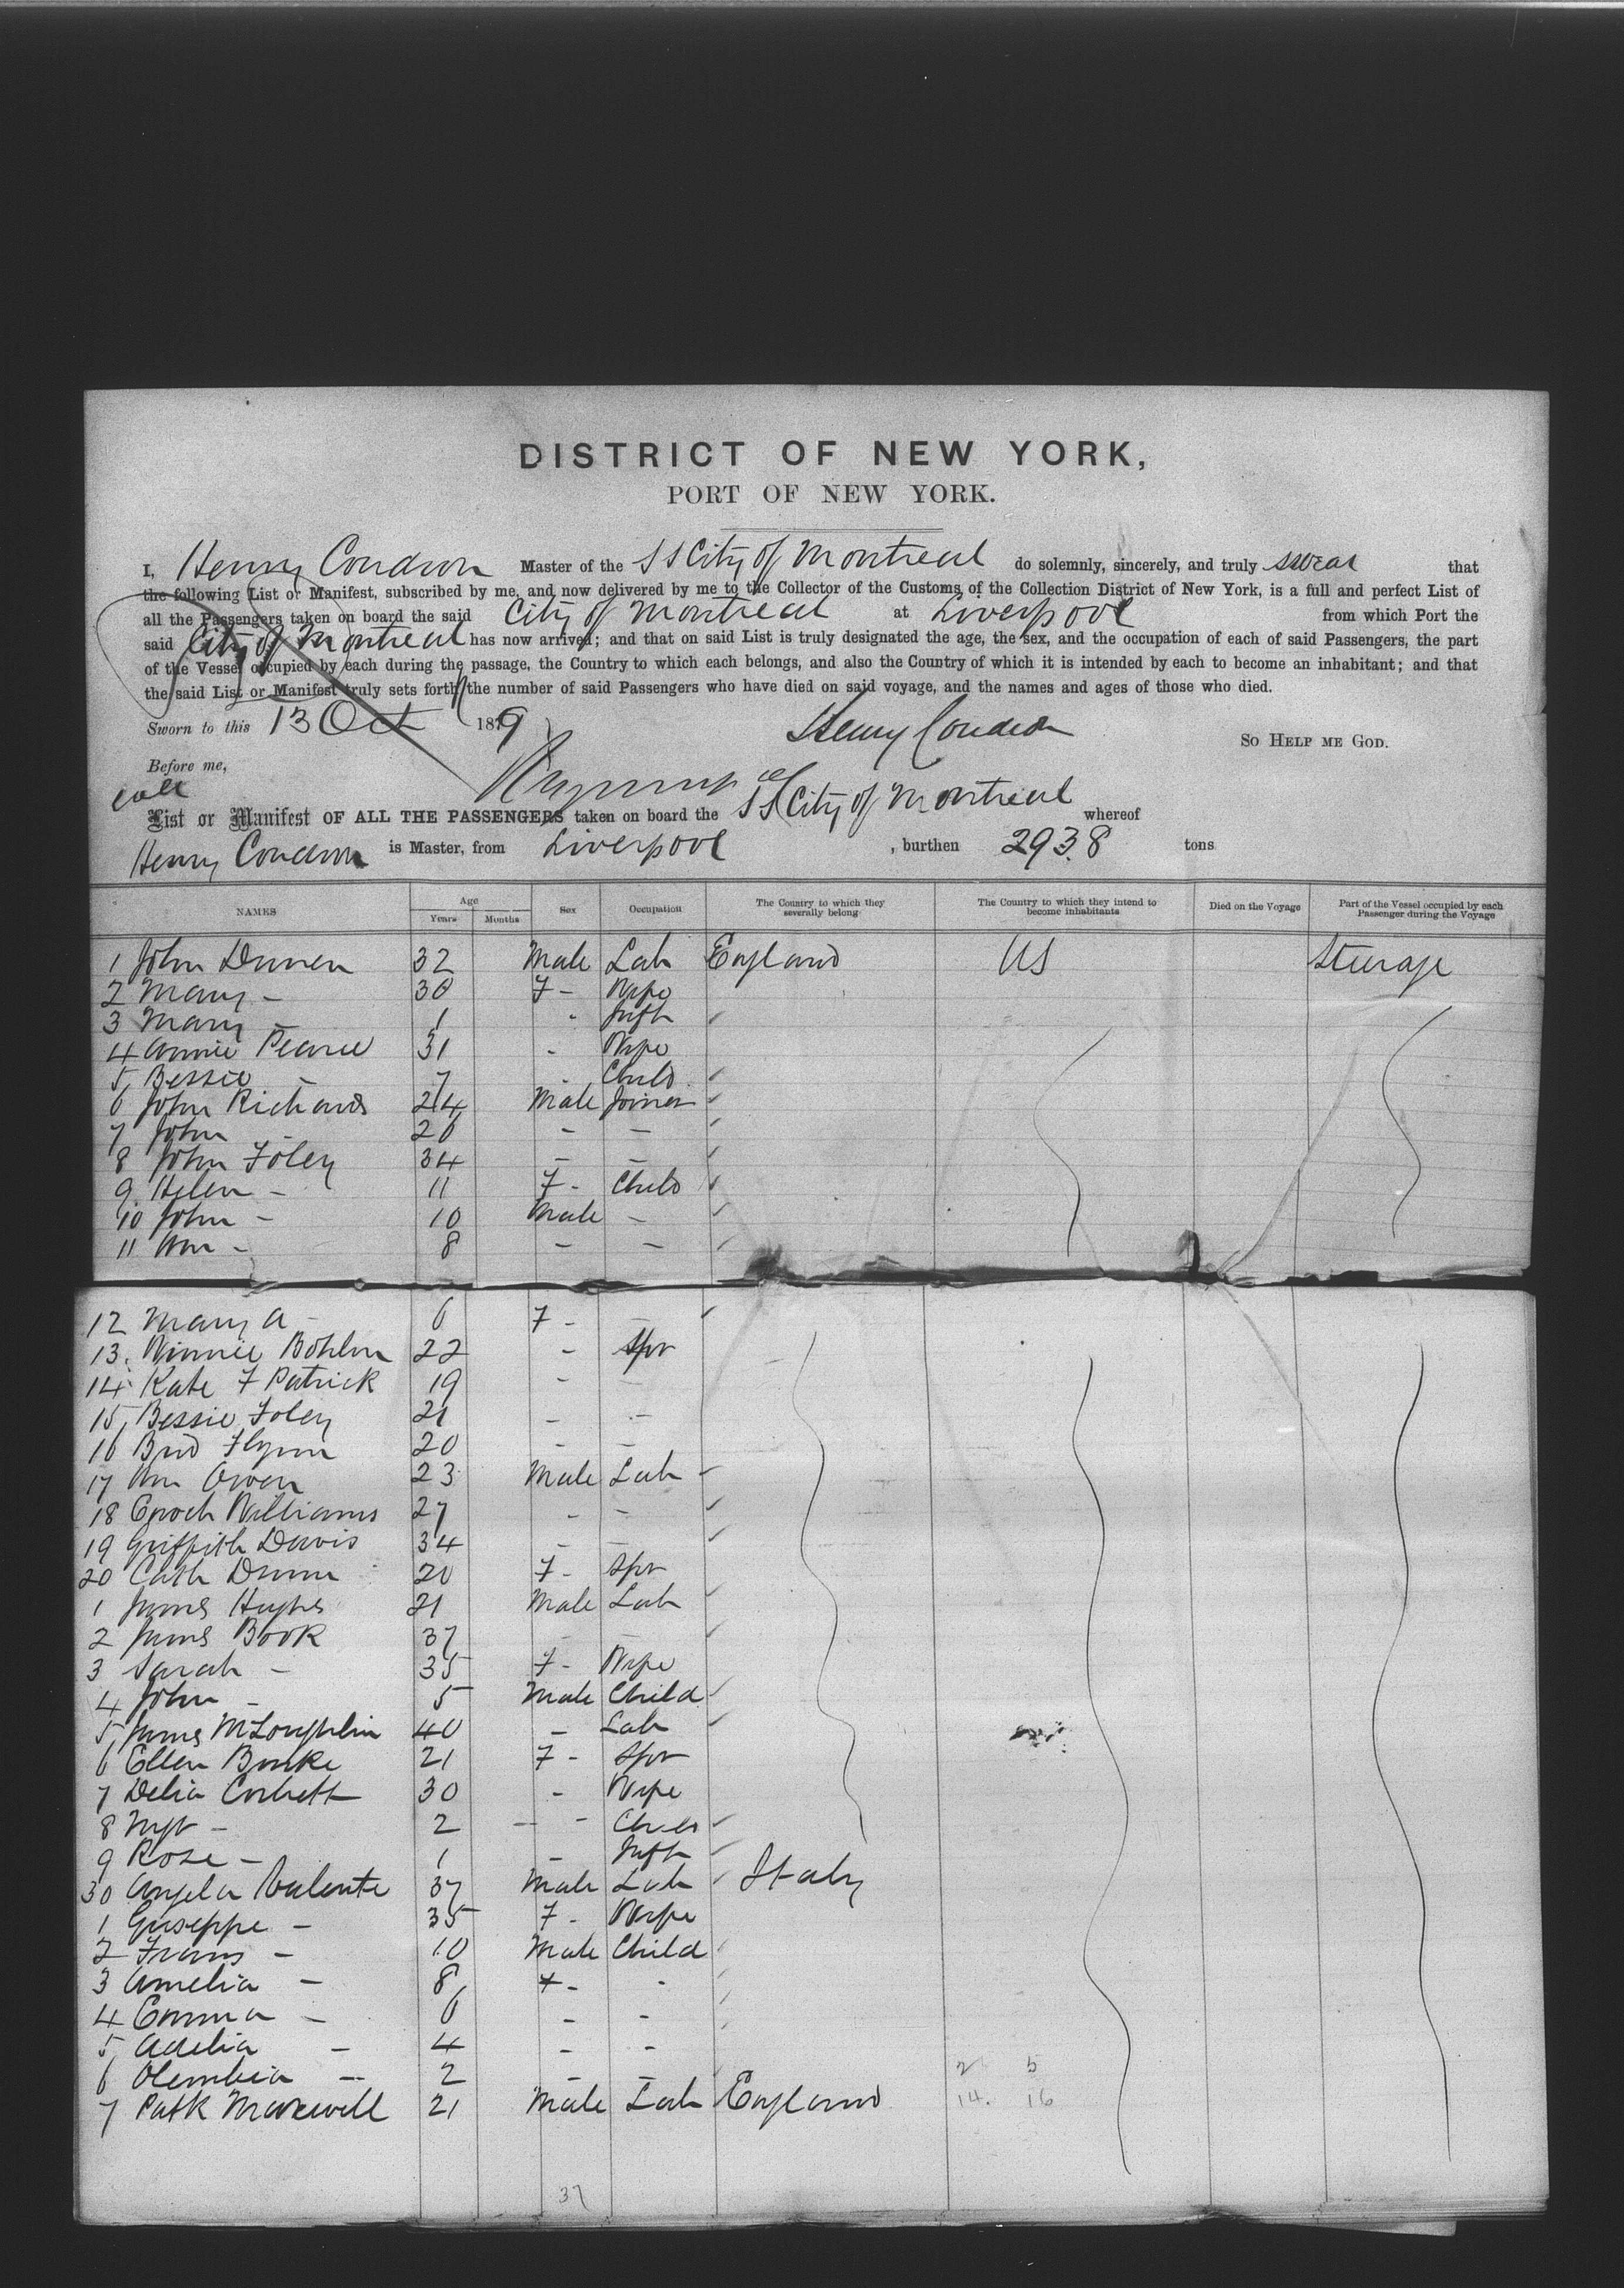 DISTRICT OF NEW YORK,
PORT OF NEW YORK.
I, Henry Condron Master of the SS City of Montreal do solemnly, sincerely, and truly swear that
the following List or Manifest, subscribed by me, and now delivered by me to the Collector of the Customs of the Collection District of New York, is a full and perfect List of
all the Passengers taken on board the said City of Montreal at Liverpool from which Port the
said City of Montreal has now arrived; and that on said List is truly designated the age, the sex, and the occupation of each of said Passengers, the part
of the Vessel occupied by each during the passage, the Country to which each belongs, and also the Country of which it is intended by each to become an inhabitant; and that
the said List or Manifest truly sets forth the number of said Passengers who have died on said voyage, and the names and ages of those who died.
Sworn to this 13 Oct 1879 Henry Condron SO HELP ME GOD.
Before me,
List or Manifest OF ALL THE PASSENGERS taken on board the SS City of Montreal whereof
Henry Condron is Master, from Liverpool, burthen 2938 tons
NAMES Age Years Months Sex Occupation The Country to which they severally belong The Country to which they intend to become inhabitants Died on the Voyage Part of the Vessel occupied by each Passenger during the Voyage
1 John 32 Male Lab England US Steerage
2 Mary - 30 F - Wife
3 Mary - 1 - Inft
4 Annie Pearce 31 - Wife
5 Bessie - 7 - Child
6 John Richards 24 Male Joiner
7 John - 20 - -
8 John Foley 34 - -
9 Helen - 11 F - Child
10 John - 10 Male -
11 Wm - 8 - -
12 Mary A - 6 F - -
13 Winnie 22 - Spr
14 Kate F Patrick 19 - -
15 Bessie Foley 21 - -
16 Brid Flynn 20 - -
17 Wm Owen 23 Male Lab
18 Enoch Williams 27 - -
19 Griffith Davis 34 - -
20 Cath Dunn 20 F - Spr
1 James Hughes 21 Male Lab
2 James Book 37 - -
3 Sarah - 35 F - Wife
4 John - 5 Male Child
5 James McLoughlin 40 - Lab
6 Ellen Burke 21 F - Spr
7 Delia Corbett 30 - Wife
8 Mgt - 2 - - Child
9 Rose - 1 - Inft
30 Angelo Valente 37 Male Lab Italy
1 Guseppe - 35 F - Wife
2 Frans - 10 Male Child
3 Amelia - 8 F - -
4 Emma - 6 - -
5 Adelia - 4 - -
6 Olembia - 2 - -
7 Patk Maxwell 21 Male Lab England
2 5
14. 16
37